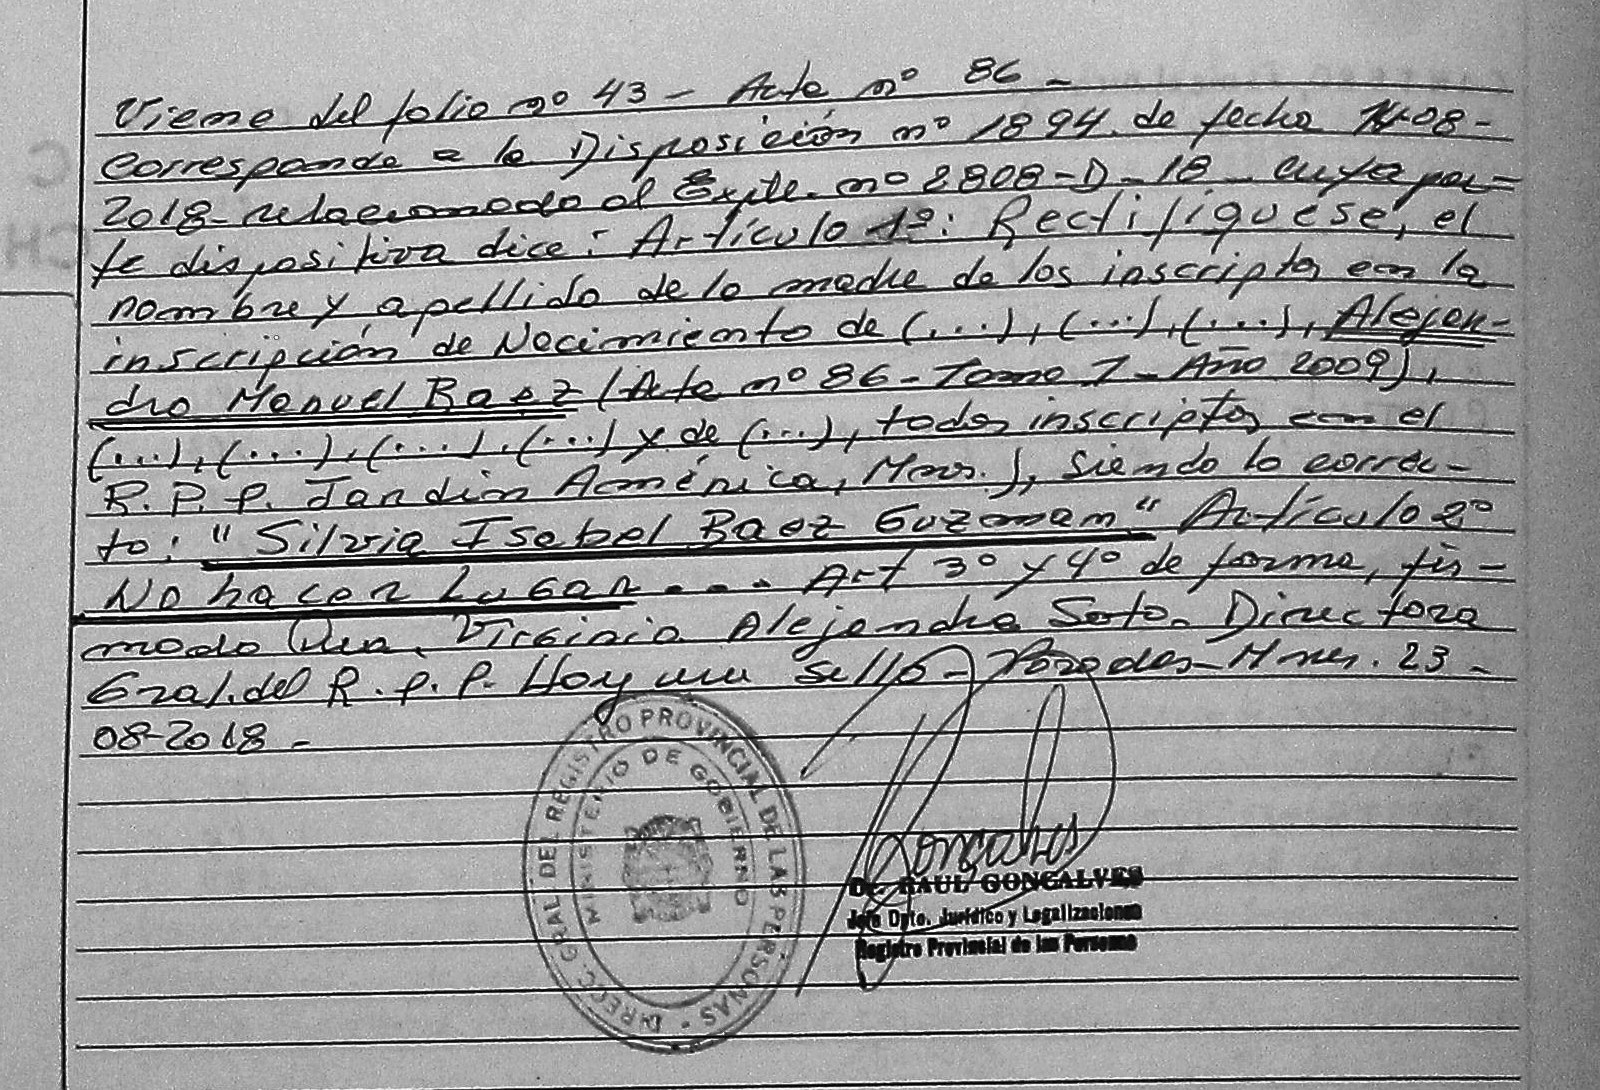 Viene del folio nº 43 - Acta nº 86 -
Corresponde a la Disposición nº 1894 de fecha 14-08-
2018- relacionado al Expte. nº 2808-D-18- cuya par=
te dispositiva dice: Artículo 1º: Rectifíquese, el
nombre y apellido de la madre de los inscriptos en la
inscripción de Nacimiento de (...), (...), (...), Alejan-
dro Manuel Baez (Acta nº 86 - Tomo I - Año 2009),
(...), (...), (...), (...) y de (...), todos inscriptos en el
R. P. P. Jardin América, Mnes.), siendo lo correc-
to: "Silvia Isabel Baez Guzman" Artículo 2º
No hacer Lugar.... Art 3º y 4º de forma, fir-
mado Dra. Virginia Alejandra Soto- Directora
Gral. del R. P. P. Hay un sello- Posadas- Mnes. 23-
08-2018 -
DIRECC. GRAL. DEL REGISTRO PROVINCIAL DE LAS PERSONAS
MINISTERIO DE GOBIERNO
Gonçalves
Dr. RAUL GONCALVES
Jefe Dpto. Jurídico y Legalizaciones
Registro Provincial de las Personas